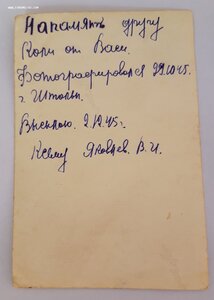 На память другу
Коли от Васи.
Фотографировался 29.10.45.
г. Штольп.
Высылаю. 2.12.45г.
Яковлев. В. И.